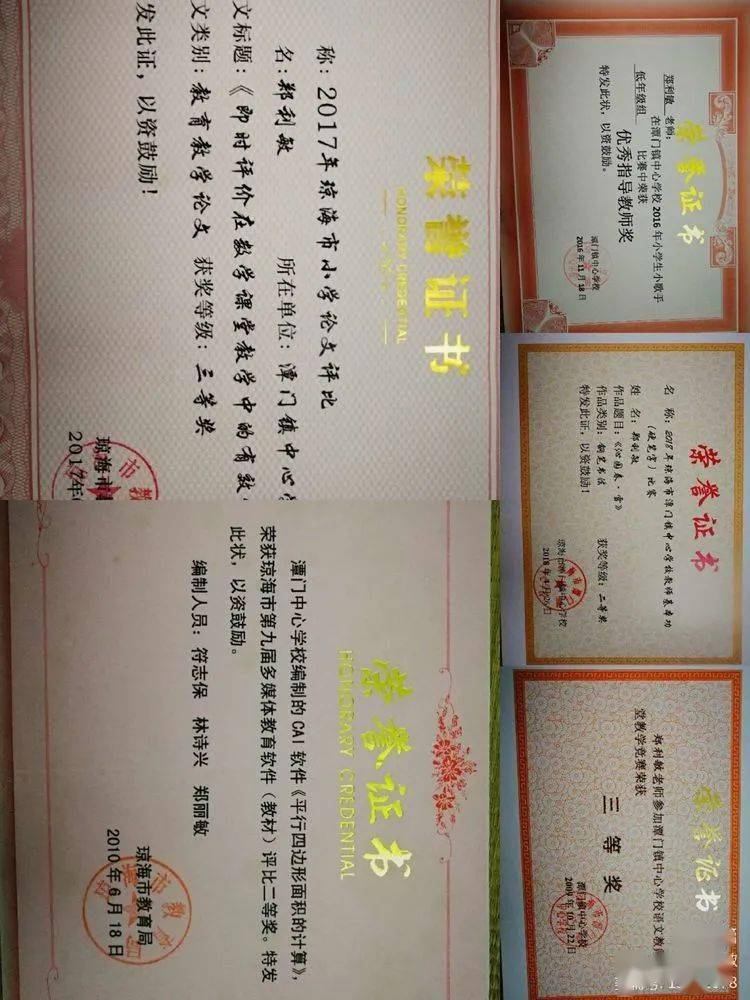 荣誉证书
HONORARY CREDENTIAL
称：2017年琼海市小学论文评比
名：郑利敏 所在单位：潭门镇中心
文标题：《即时评价在数学课堂教学中的有效
文类别：教育教学论文 获奖等级：三等奖
发此证，以资鼓励！
琼海市
2017年
荣誉证书
郑利敏 老师：
在潭门镇中心学校2016年小学生小歌手
低年级组 比赛中荣获
优秀指导教师奖
特发此状，以资鼓励。
潭门镇中心学校
2016年11月18日
荣誉证书
名 称：2018年琼海市潭门镇中心学校教师基本功
（硬笔字）比赛
姓 名：郑利敏
作品题目：《沁园春·雪》 获奖等级：二等奖
作品类别：钢笔书法
特发此证，以资鼓励！
琼海市潭门镇中心学校
2018年4月
荣誉证书
HONORARY CREDENTIAL
潭门中心学校编制的CAI软件《平行四边形面积的计算》，
荣获琼海市第九届多媒体教育软件（教材）评比二等奖。特发
此状，以资鼓励。
编制人员：符志保 林诗兴 郑丽敏
琼海市教育局
2010年6月18日
荣誉证书
郑利敏老师参加潭门镇中心学校语文教师
堂教学竞赛荣获
三等奖
潭门镇中心学校
2009年10月22日